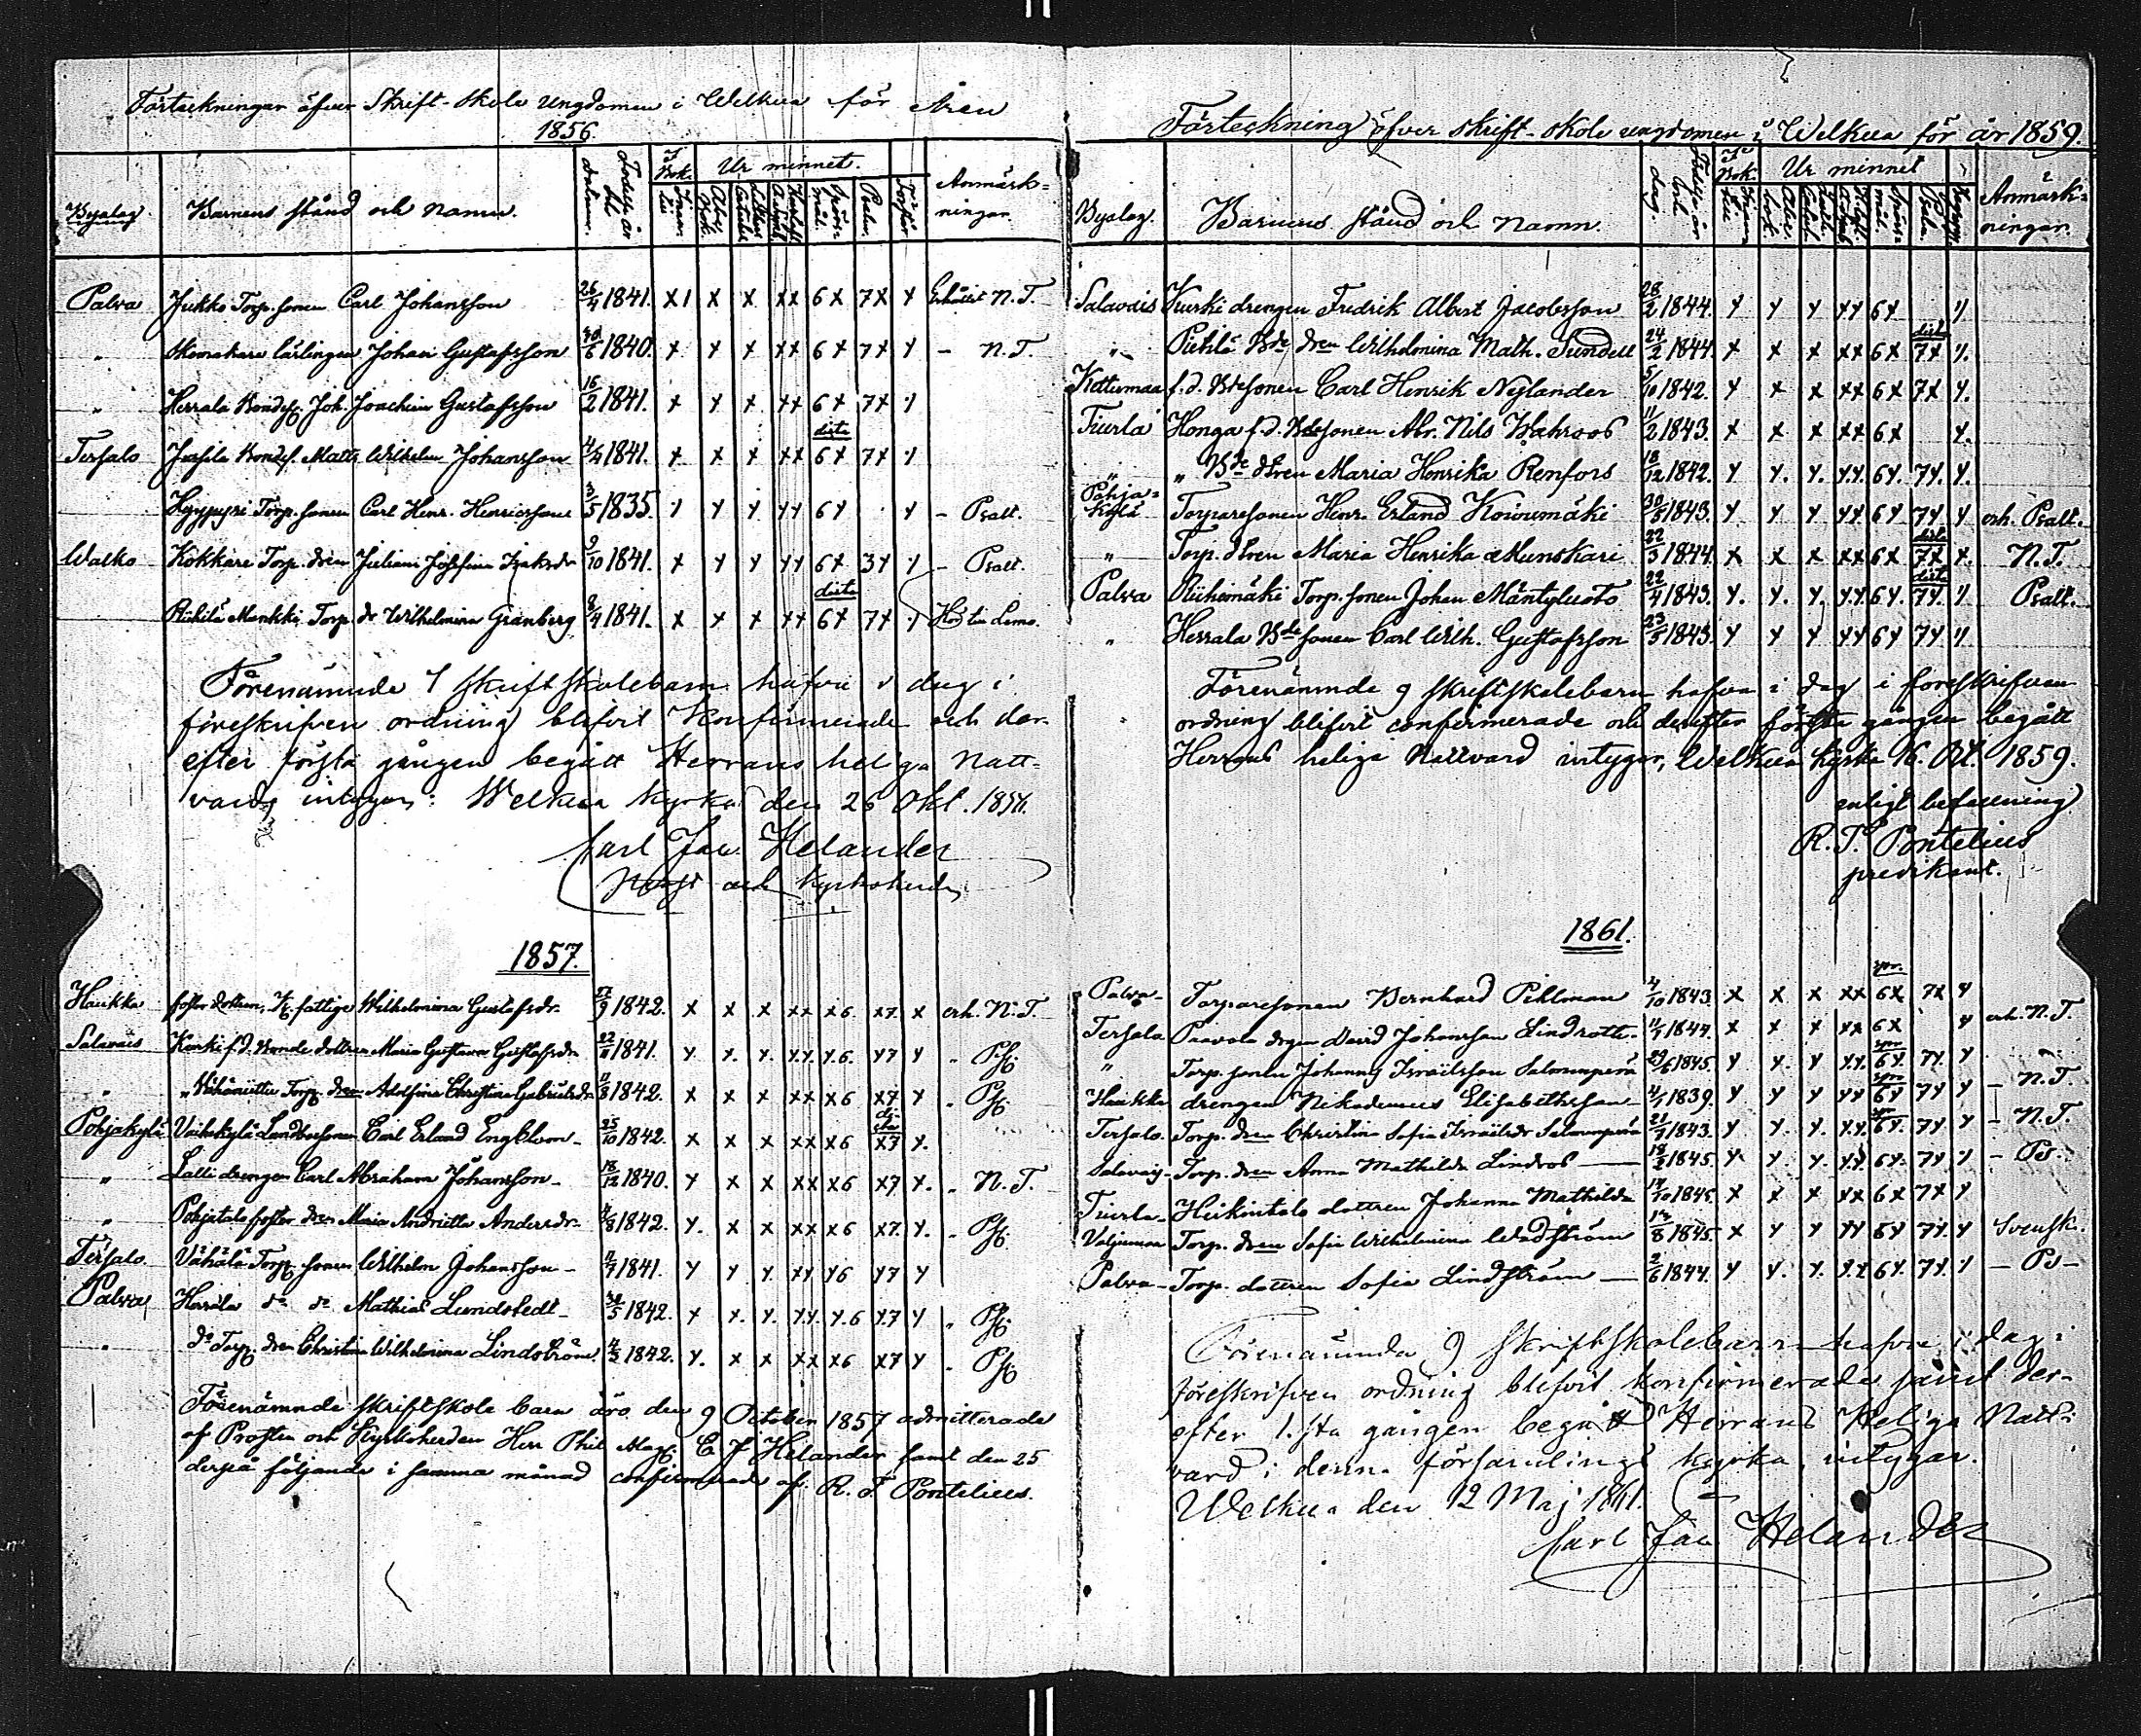 Förteckningar öfver Skrift-skole ungdomen i Welkua för Åren
1856.
Byalag. Barnens stånd och namn. Födelse år och datum. I Bok. Innan till Ur minnet. Abc bok. Luthers Cateches Hustafl. Athanas. Spörsmål. Psalm. Förstår Anmärkningar.
Palva Jukko Torp. sonen Carl Johansson 26/4 1841. x1 x x xx 6x 7x x Erhållit N.T.
" skomakare lärlingen Johan Gustafsson 30/6 1840. x x x xx 6x 7x x – N.T.
" Herrala Bondes. Joh. Joachim Gustafsson 16/2 1841. x x x xx 6x 7x x
Tersalo Bondes. Matts Wilhelm Johansson 4/4 1841. x x x xx dista 6x 7x x
Hyypyri Torp. sonen Carl Henr. Henricsson 3/5 1835. x x x xx 6x x – Psalt.
Walko Kokkare Torp. dren Juliana Josefina 9/10 1841. x x x xx 6x 3x x – Psalt.
Mankki Torp. dr Wilhelmina Granberg 8/4 1841. x x x xx dista 6x 7x x
Förenämnde 7 skriftskolebarn hafva i dag i
föreskrifven ordning blifvit Konfirmerade och der-
efter första gången begått Herrans helga Natt-
vard, intygar: Welkua kyrka den 26 Okt. 1856.
Carl Jac. Helander
Prost och Kyrkoherde
1857.
Haukka foster dottren, fattige Wilhelmina Gustafsdr. 9 1842. x x x xx x6. x7. x erh. N.T.
Salavais Kurki f.d. Bonde dottren Maria Gustava Gustafsdr 22/11 1841. x x. x. xx. x.6. x7 x " Ps.
" Torp. dren Adolfina Christina Gabrielsdr 11/8 1842. x x x xx x6 x7 x " Ps.
Pohjakylä Vähäkylä Landbosonen Carl Erland Engblom – 25/10 1842. x x x xx x6 dista x7 x.
" Lalli drengen Carl Abraham Johansson – 18/12 1840. x x x xx x6 x7 x. " N.T.
" Pohjatalo foster dren Maria Andrietta Andersdr. 4/8 1842. x. x x xx x6 x7. x. " Ps.
Tersalo. Vähälä Torp. sonen Wilhelm Johansson – 11/7 1841. x x x. xx x6 x7 x
Palva Herrala do do Mathias Lundstedt – 30/5 1842. x x. x. xx. x.6 x7 x " Ps.
" do Torp. dren Christina Wilhelmina Lindström. 4/3 1842. x. x x xx x6 x7 x " Ps.
Förenämnde skriftskole barn äro den 9 October 1857 admitterade
af Prosten och Kyrkoherden Herr Phil. Mag. C. J. Helander samt den 25
derpå följande i samma månad confirmerade af R. T. Pontelius.
Förteckning öfver skrift-skole ungdomen i Welkua för år 1859.
Byalag. Barnens stånd och namn. Födelse år och dag. I Bok. Innan till Ur minnet Abc bok. Spörsmål. Psalm. Anmärkningar.
Salavais Kurki drengen Fredrik Albert Jacobsson 28/2 1844. x x x xx 6x x
" Pihlä Bde dren Wilhelmina Math. Sundell 24/2 1844. x x x xx 6x dist 7x x.
Kettumaa f.d. Bdesonen Carl Henrik Nylander 5/10 1842. x x x xx 6x 7x x.
Tiurla Honga f.d. Bdesonen Abr. Nils Wahroos 11/2 1843. x x x xx 6x x.
" " Bde dtren Maria Henrika Renfors 18/12 1842. x x. x. xx. 6x. 7x. x.
Pohjakylä Torparesonen Henr. Erland Koivumäki 30/8 1843. x x x xx 6x 7x x erh. Psalt.
" Torp. dtren Maria Henrika Munskari 22/3 1844. x x x xx 6x dista 7x x. N.T.
Palva Riihimäki Torp. sonen Johan Mäntyluoto 22/4 1843. x. x. x. xx. 6x. dista 7x. x Psalt.
" Herrala Bde sonen Carl Wilh. Gustafsson 23/5 1843. x x x xx 6x 7x x
Förenämnde 9 skriftskolebarn hafva i dag i föreskrifven
ordning blifvit confirmerade och derefter första gången begått
Herrans heliga Nattvard intygar, Welkua kyrka 16. Okt. 1859.
enligt befallning
R. T. Pontelius
predikant.
1861.
Palva – Torparesonen Bernhard Pihlman 4/10 1843 x x x xx spr. 6x 7x x
Tersala Paavola drgen David Johansson Lindrotte – 1844. x x x xx 6x x erh. N.T.
" Torp. sonen Johannes Israelsson Salonnperä 29/6 1845. x x x. xx. spr 6x 7x. x "
Haukka drengen Nikodemus Elisabethsson 1839. x x x xx spr 6x 7x x – N.T.
Tersalo. Torp. dren Christina Sofia Israelsdr Salonnperä 21/7 1843. x x. x. xx. spr 6x. 7x x – N.T.
Salavais – Torp. dren Anna Mathilda Lindros – 18/2 1845. x x. x. xx 6x. 7x x – Ps.
Tiurla – Heikintalo dottren Johanna Mathilda 14/10 1845. x x x xx 6x 7x x
Torp. dren Sofia Wilhelmina Wadström 13/8 1845. x x x xx 6x 7x. x Svensk.
Palva – Torp. dottren Sofia Lindström – 2/6 1844. x x. x. xx 6x. 7x. x – Ps –
Förenämnda 9 skriftskolebarn hafva i dag i
föreskrifven ordning blifvit konfirmerade samt der-
efter 1.sta gången begått Herrans Heliga Natt-
vard i denna församlings kyrka, intygar.
Welkua den 12 Maj 1861.
Carl Jac Helander